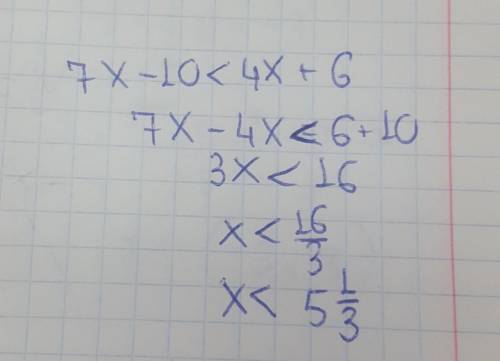 7x-10<4x+6
7x-4x<6+10
3x<16
x<16/3
x< 5 1/3